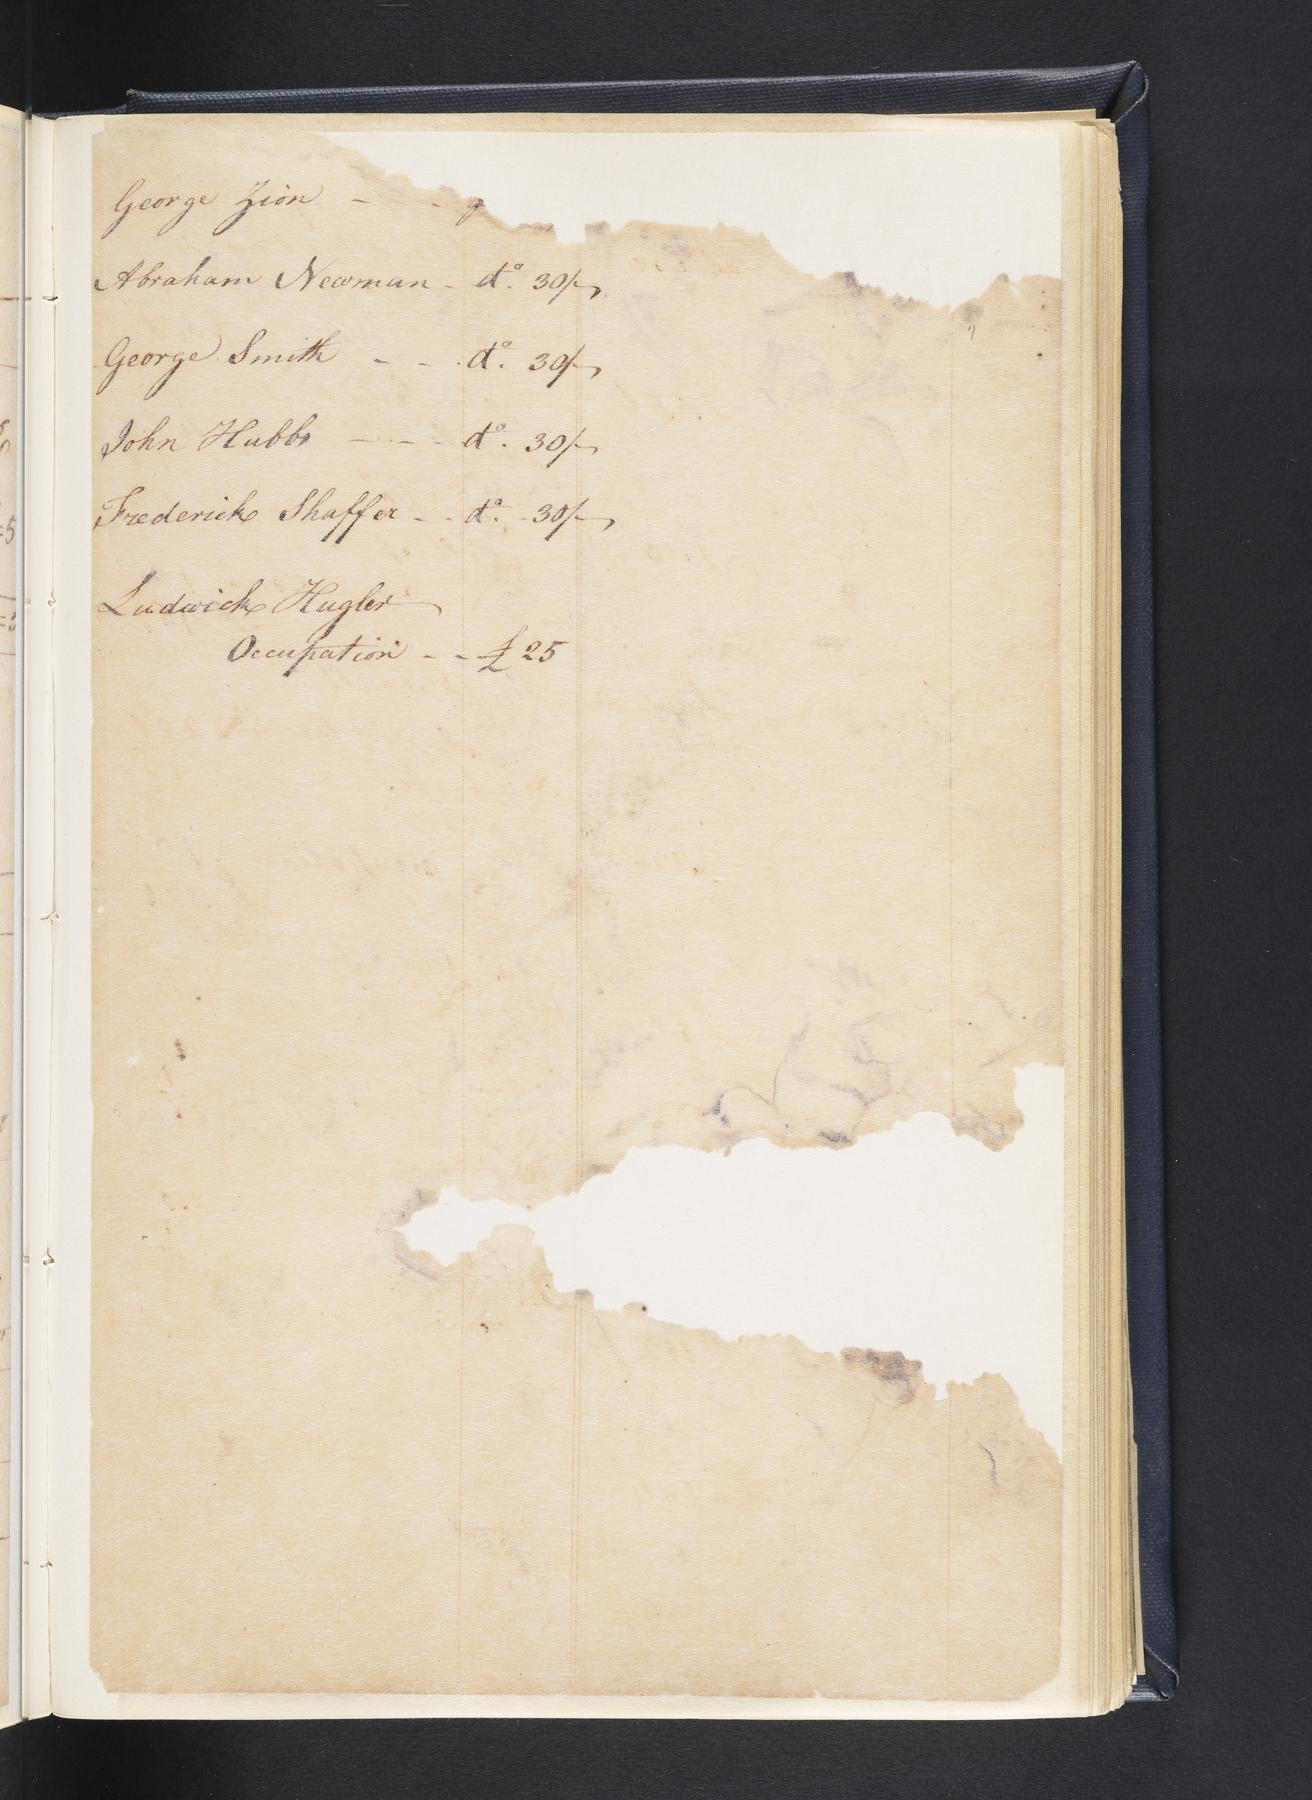 George Zion - - - p
Abraham Newman - do. 30/-,
George Smith - - . do. 30/-,
John Hubbs - - - - do. 30/-,
Frederick Shaffer - - do. - 30/-,
Ludwick Hugler
Occupation - - £ 25